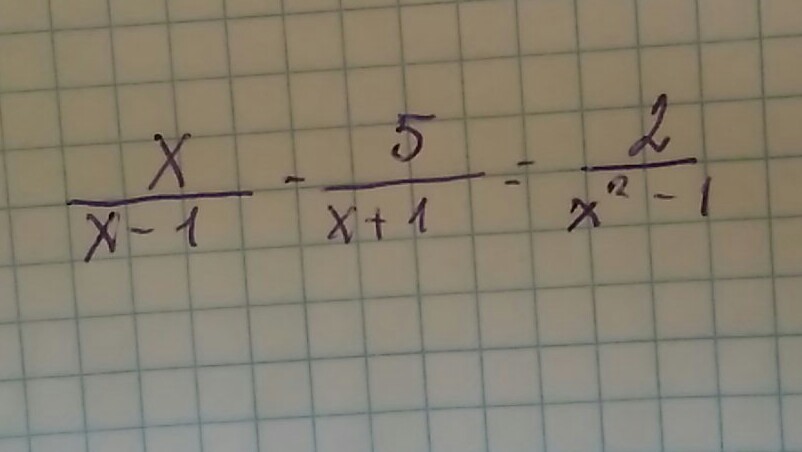 x/(x-1) - 5/(x+1) = 2/(x²-1)